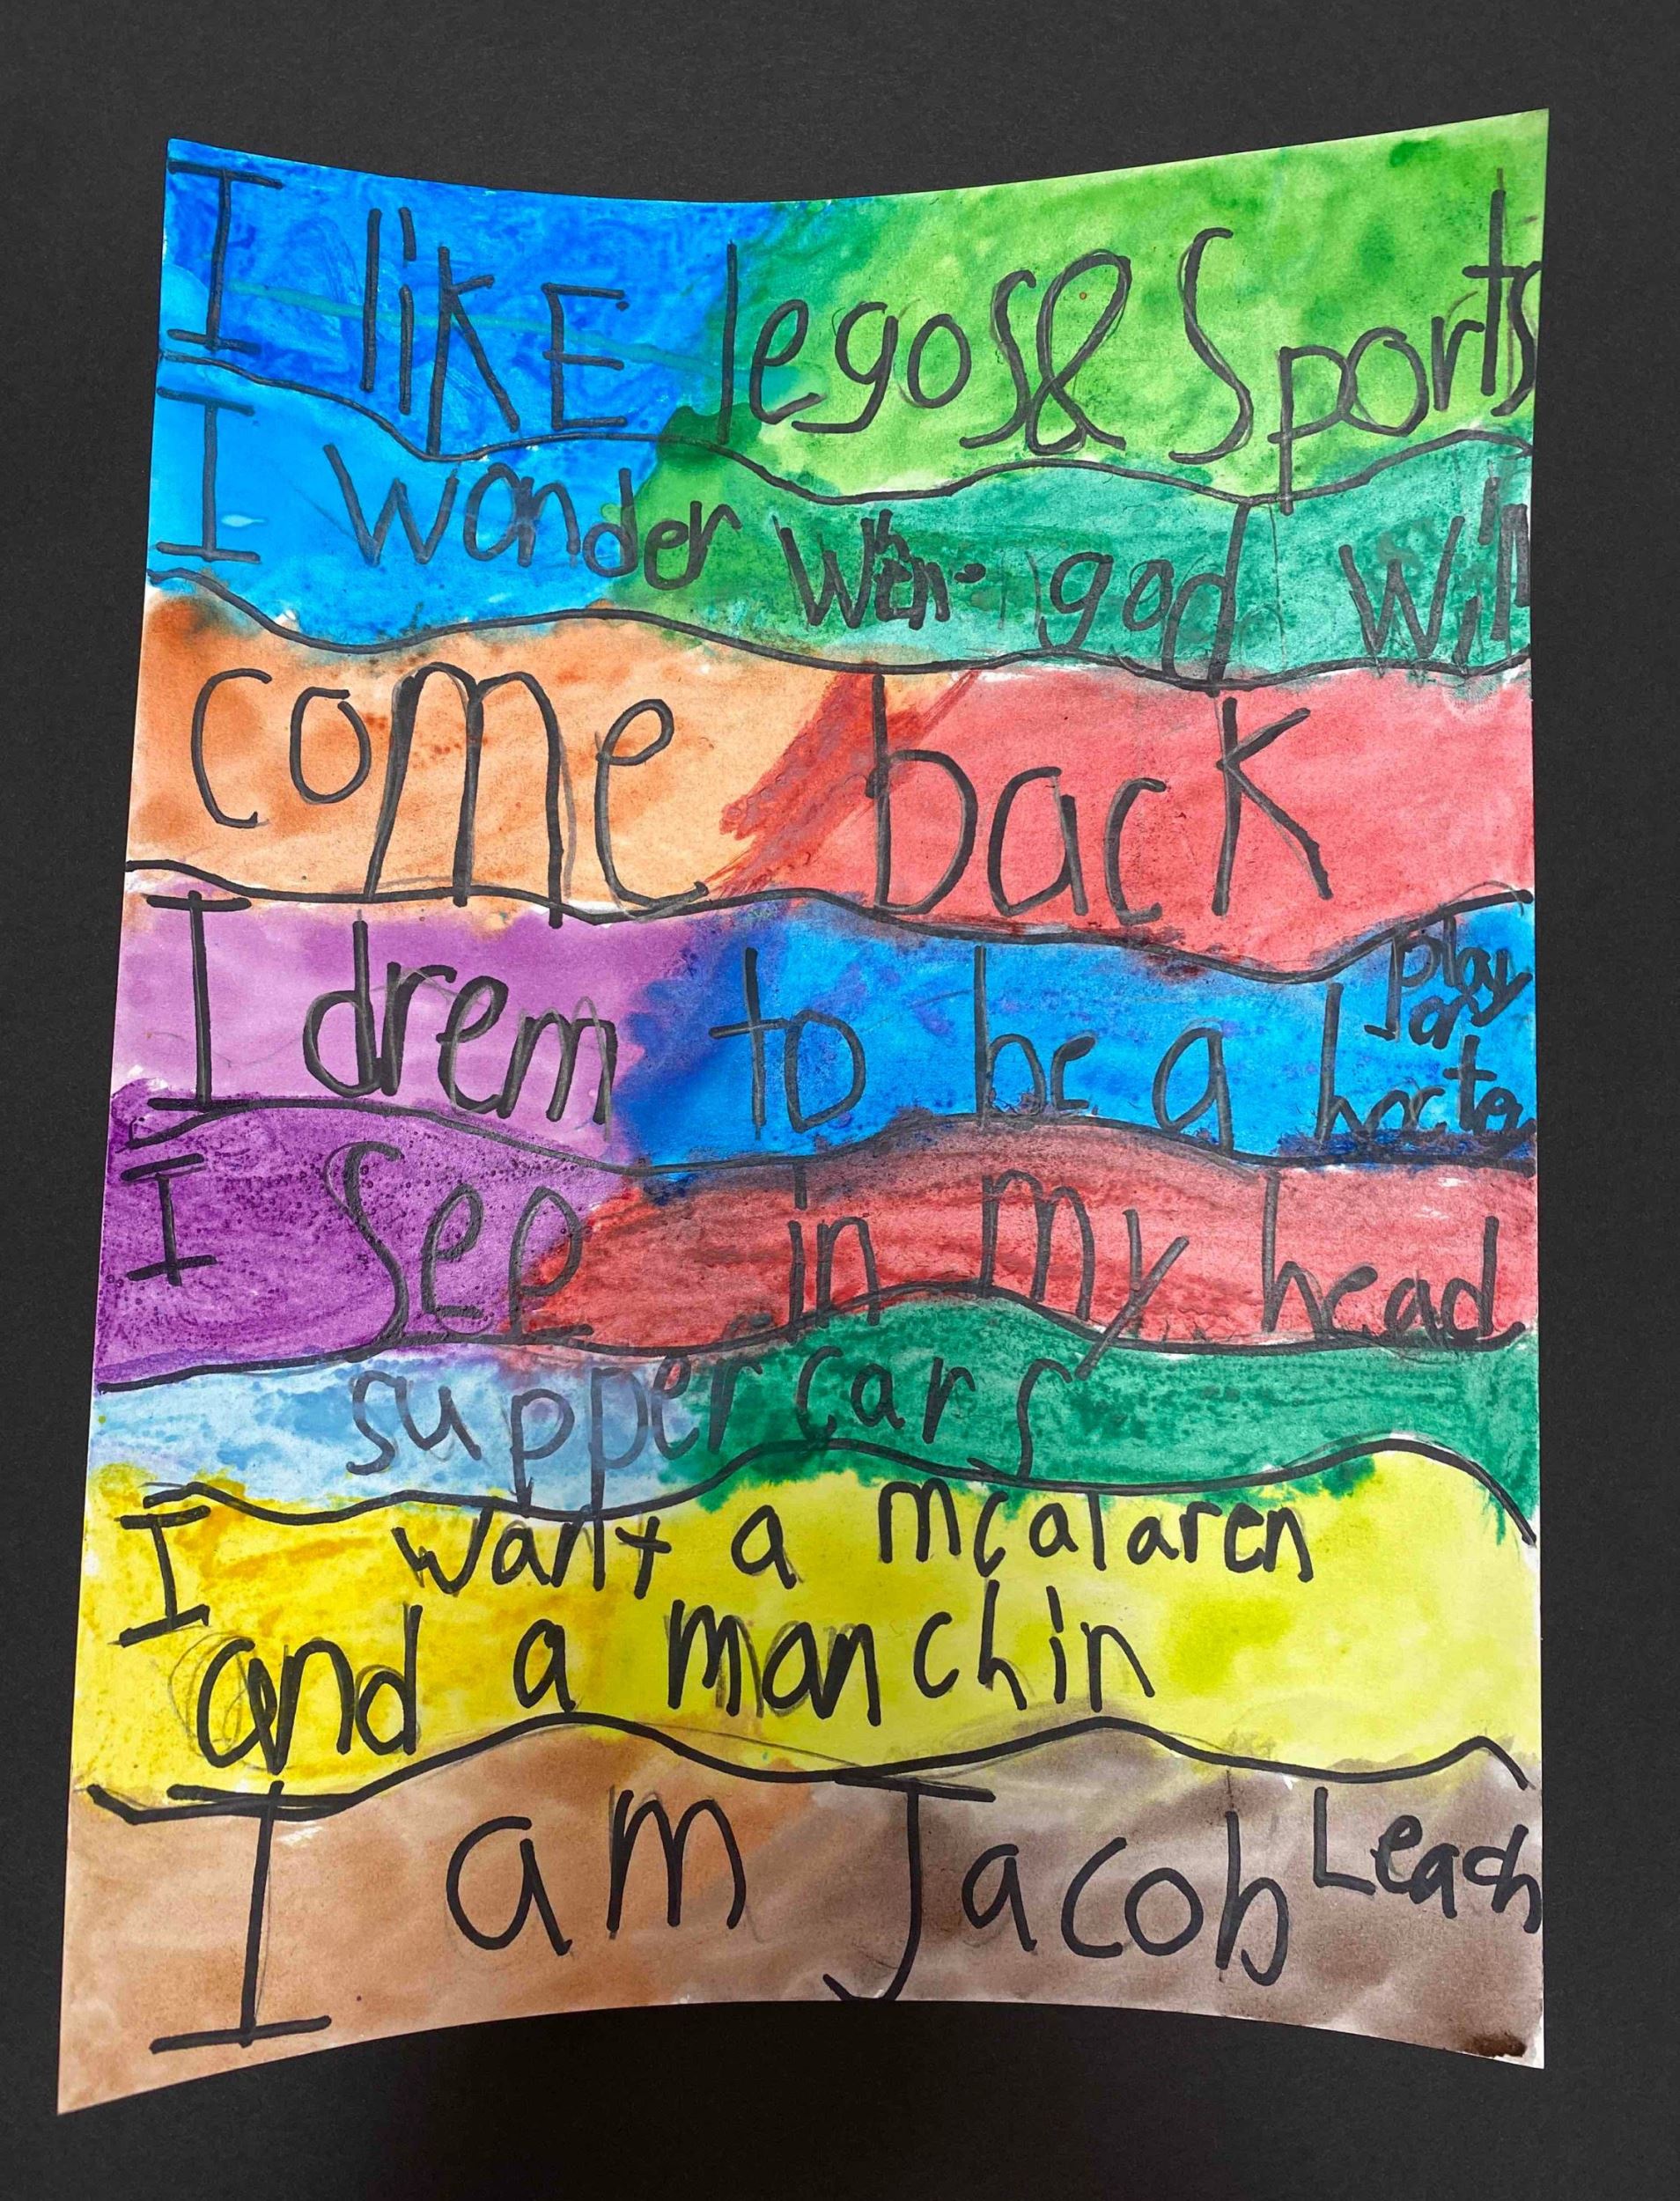 I likE legos & Sports
I wonder When god will
come back
I drem to be a play
I see in my head
supper cars
I want a mcalaren
and a manchin
I am Jacob Leach